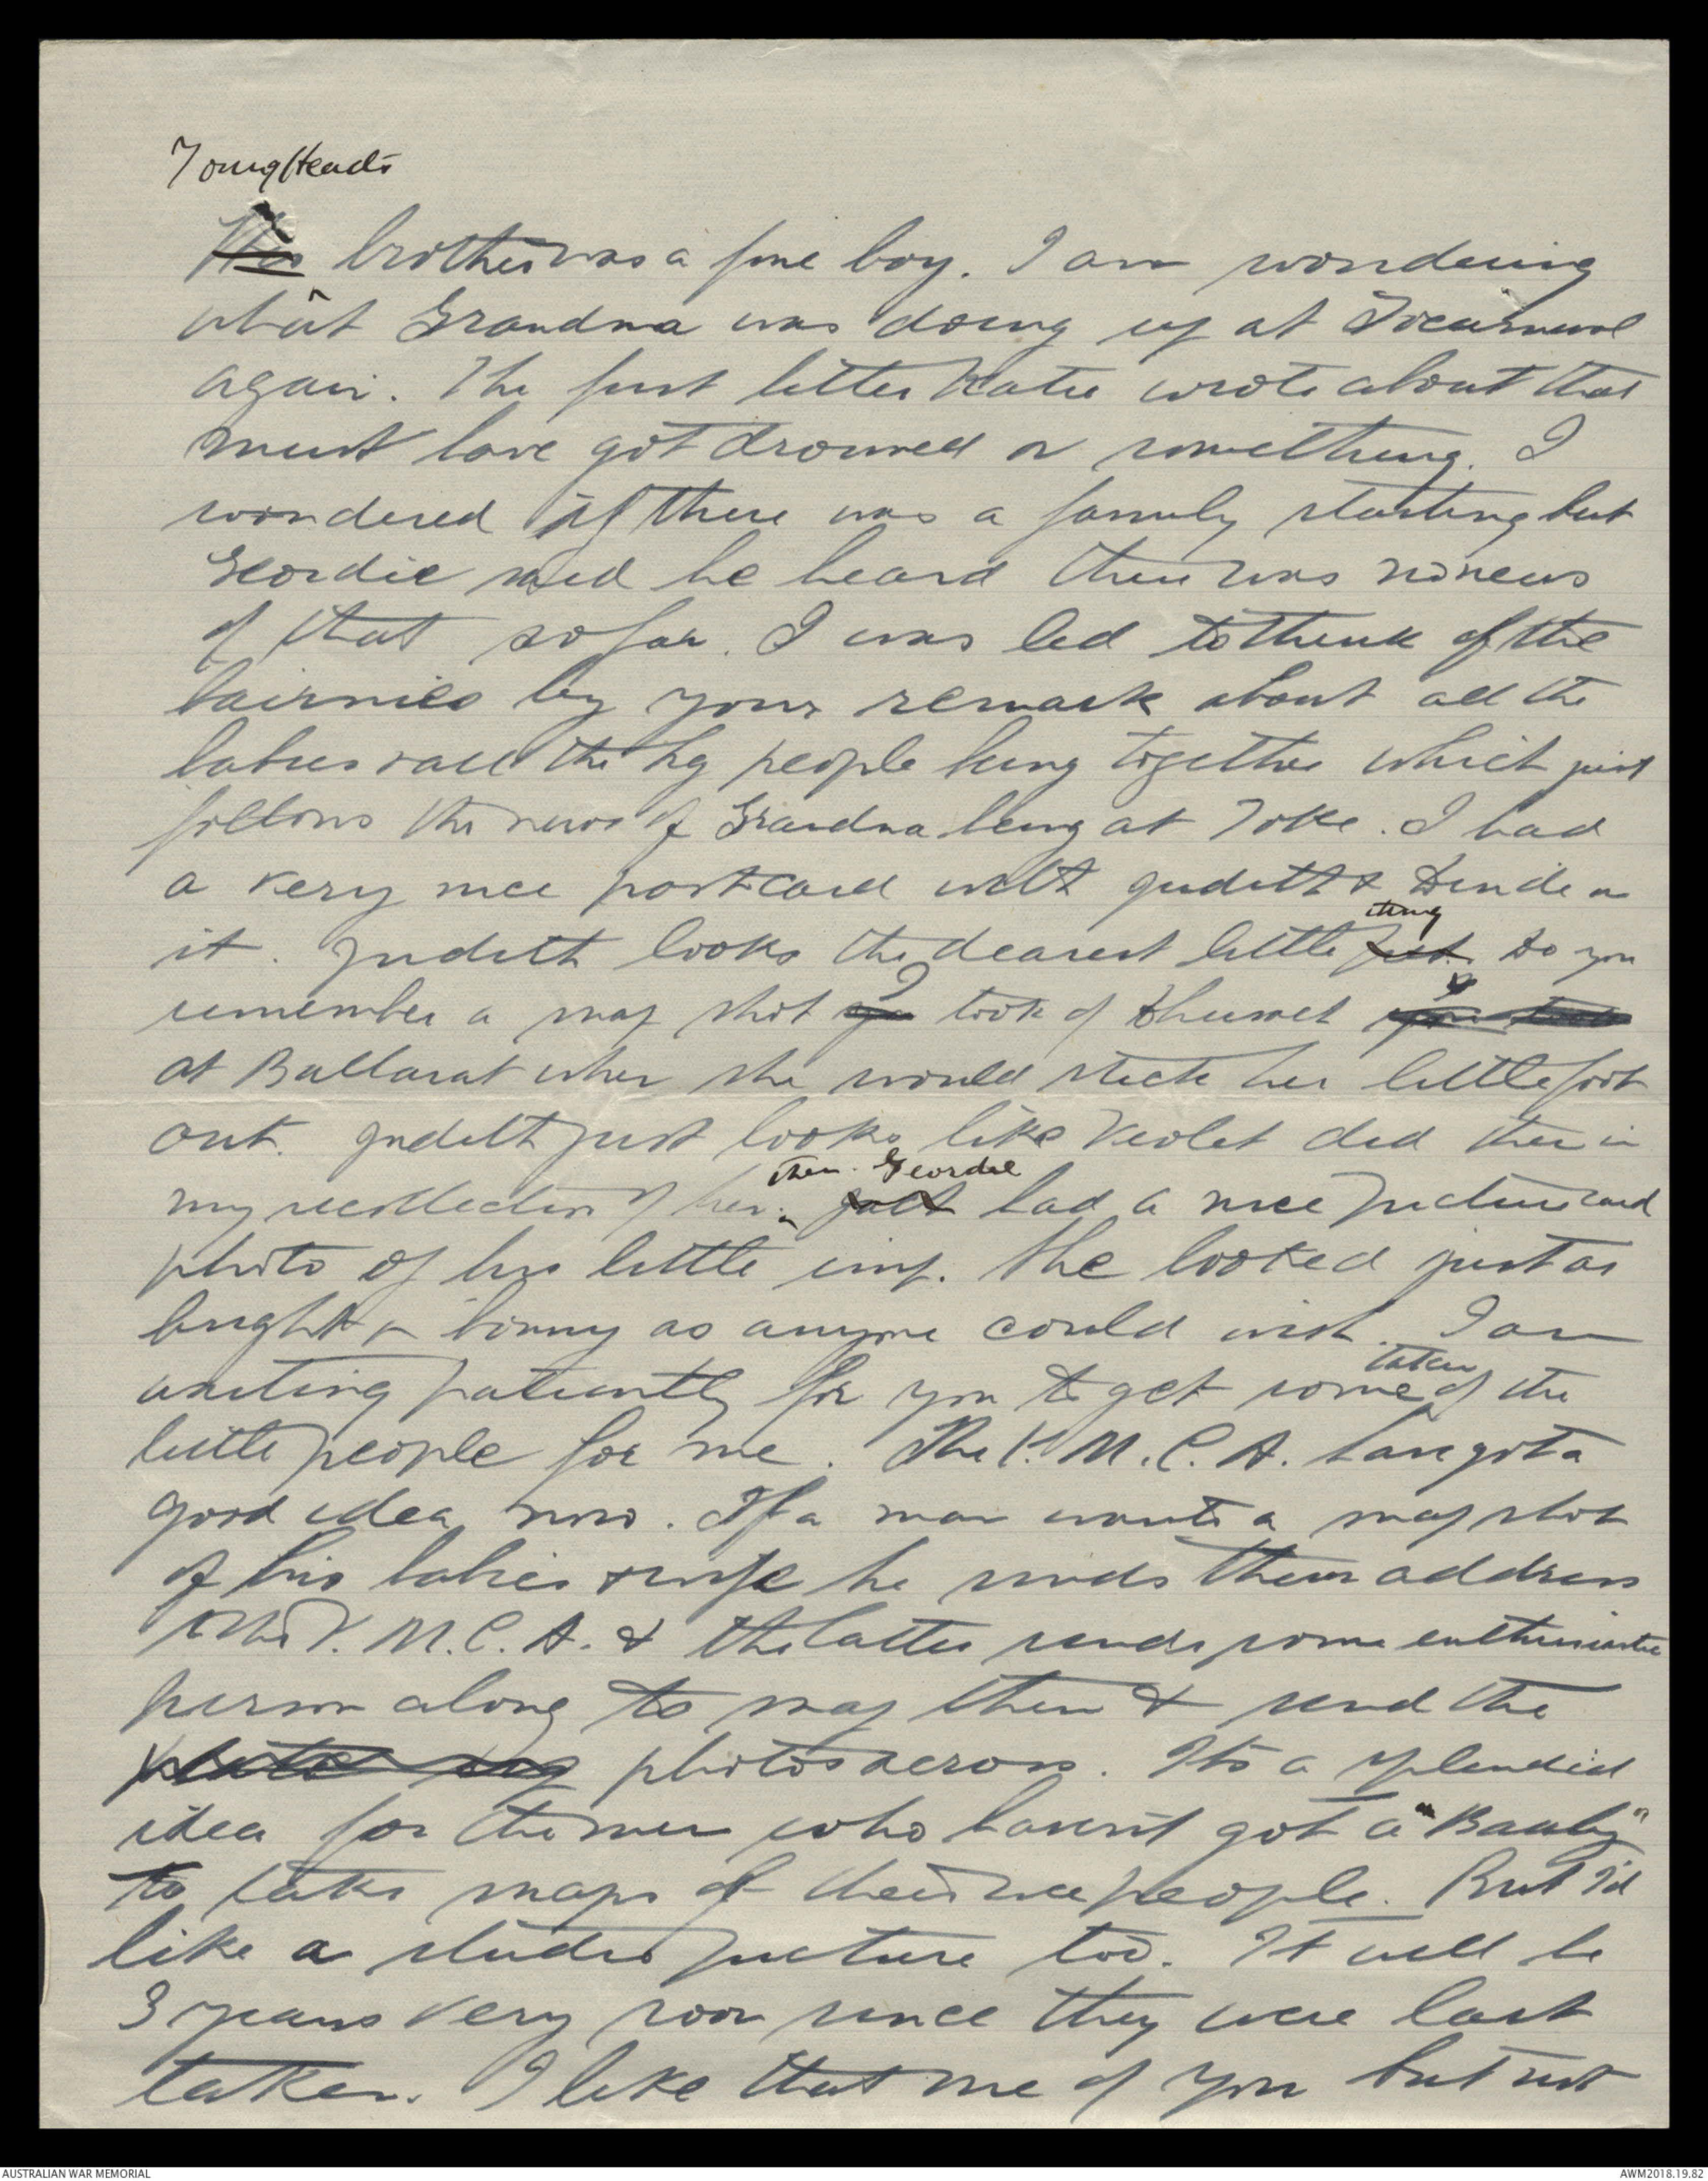 Youngheads
His brother was a fine boy. I am wondering
what Grandma was doing up at
again. The first letter Katie wrote about that
must have got drowned or something. I
wondered if there was a family starting but
Geordie said he heard there was no news
of that so far. I was led to think of the
bairnies by your remark about all the
babies & all the big people being together which just
follows the news of Grandma being at Toke. I had
a very nice postcard with Judith & on
it. Judith looks the dearest little thing. Do you
remember a snap shot I took of
at Ballarat when she would stick her little foot
out. Judith just looks like Violet did then in
my recollection of her then. Geordie had a nice picture card
photo of his little imp. She looked just as
bright & bonny as anyone could wish. I am
waiting patiently for you to get some taken of the
little people for me. The Y.M.C.A. have got a
good idea now. If a man wants a snap shot
of his babies & wife he sends them address
to the Y.M.C.A. & the latter sends some enthusiastic
person along to snap them & send the
photos across. It's a splendid
idea for the men who haven't got a "Bauby"
to take snaps of their wee people. But I'd
like a studio picture too. It will be
3 years very soon since they were last
taken. I like that one of you but not
AUSTRALIAN WAR MEMORIAL
AWM2018.19.82